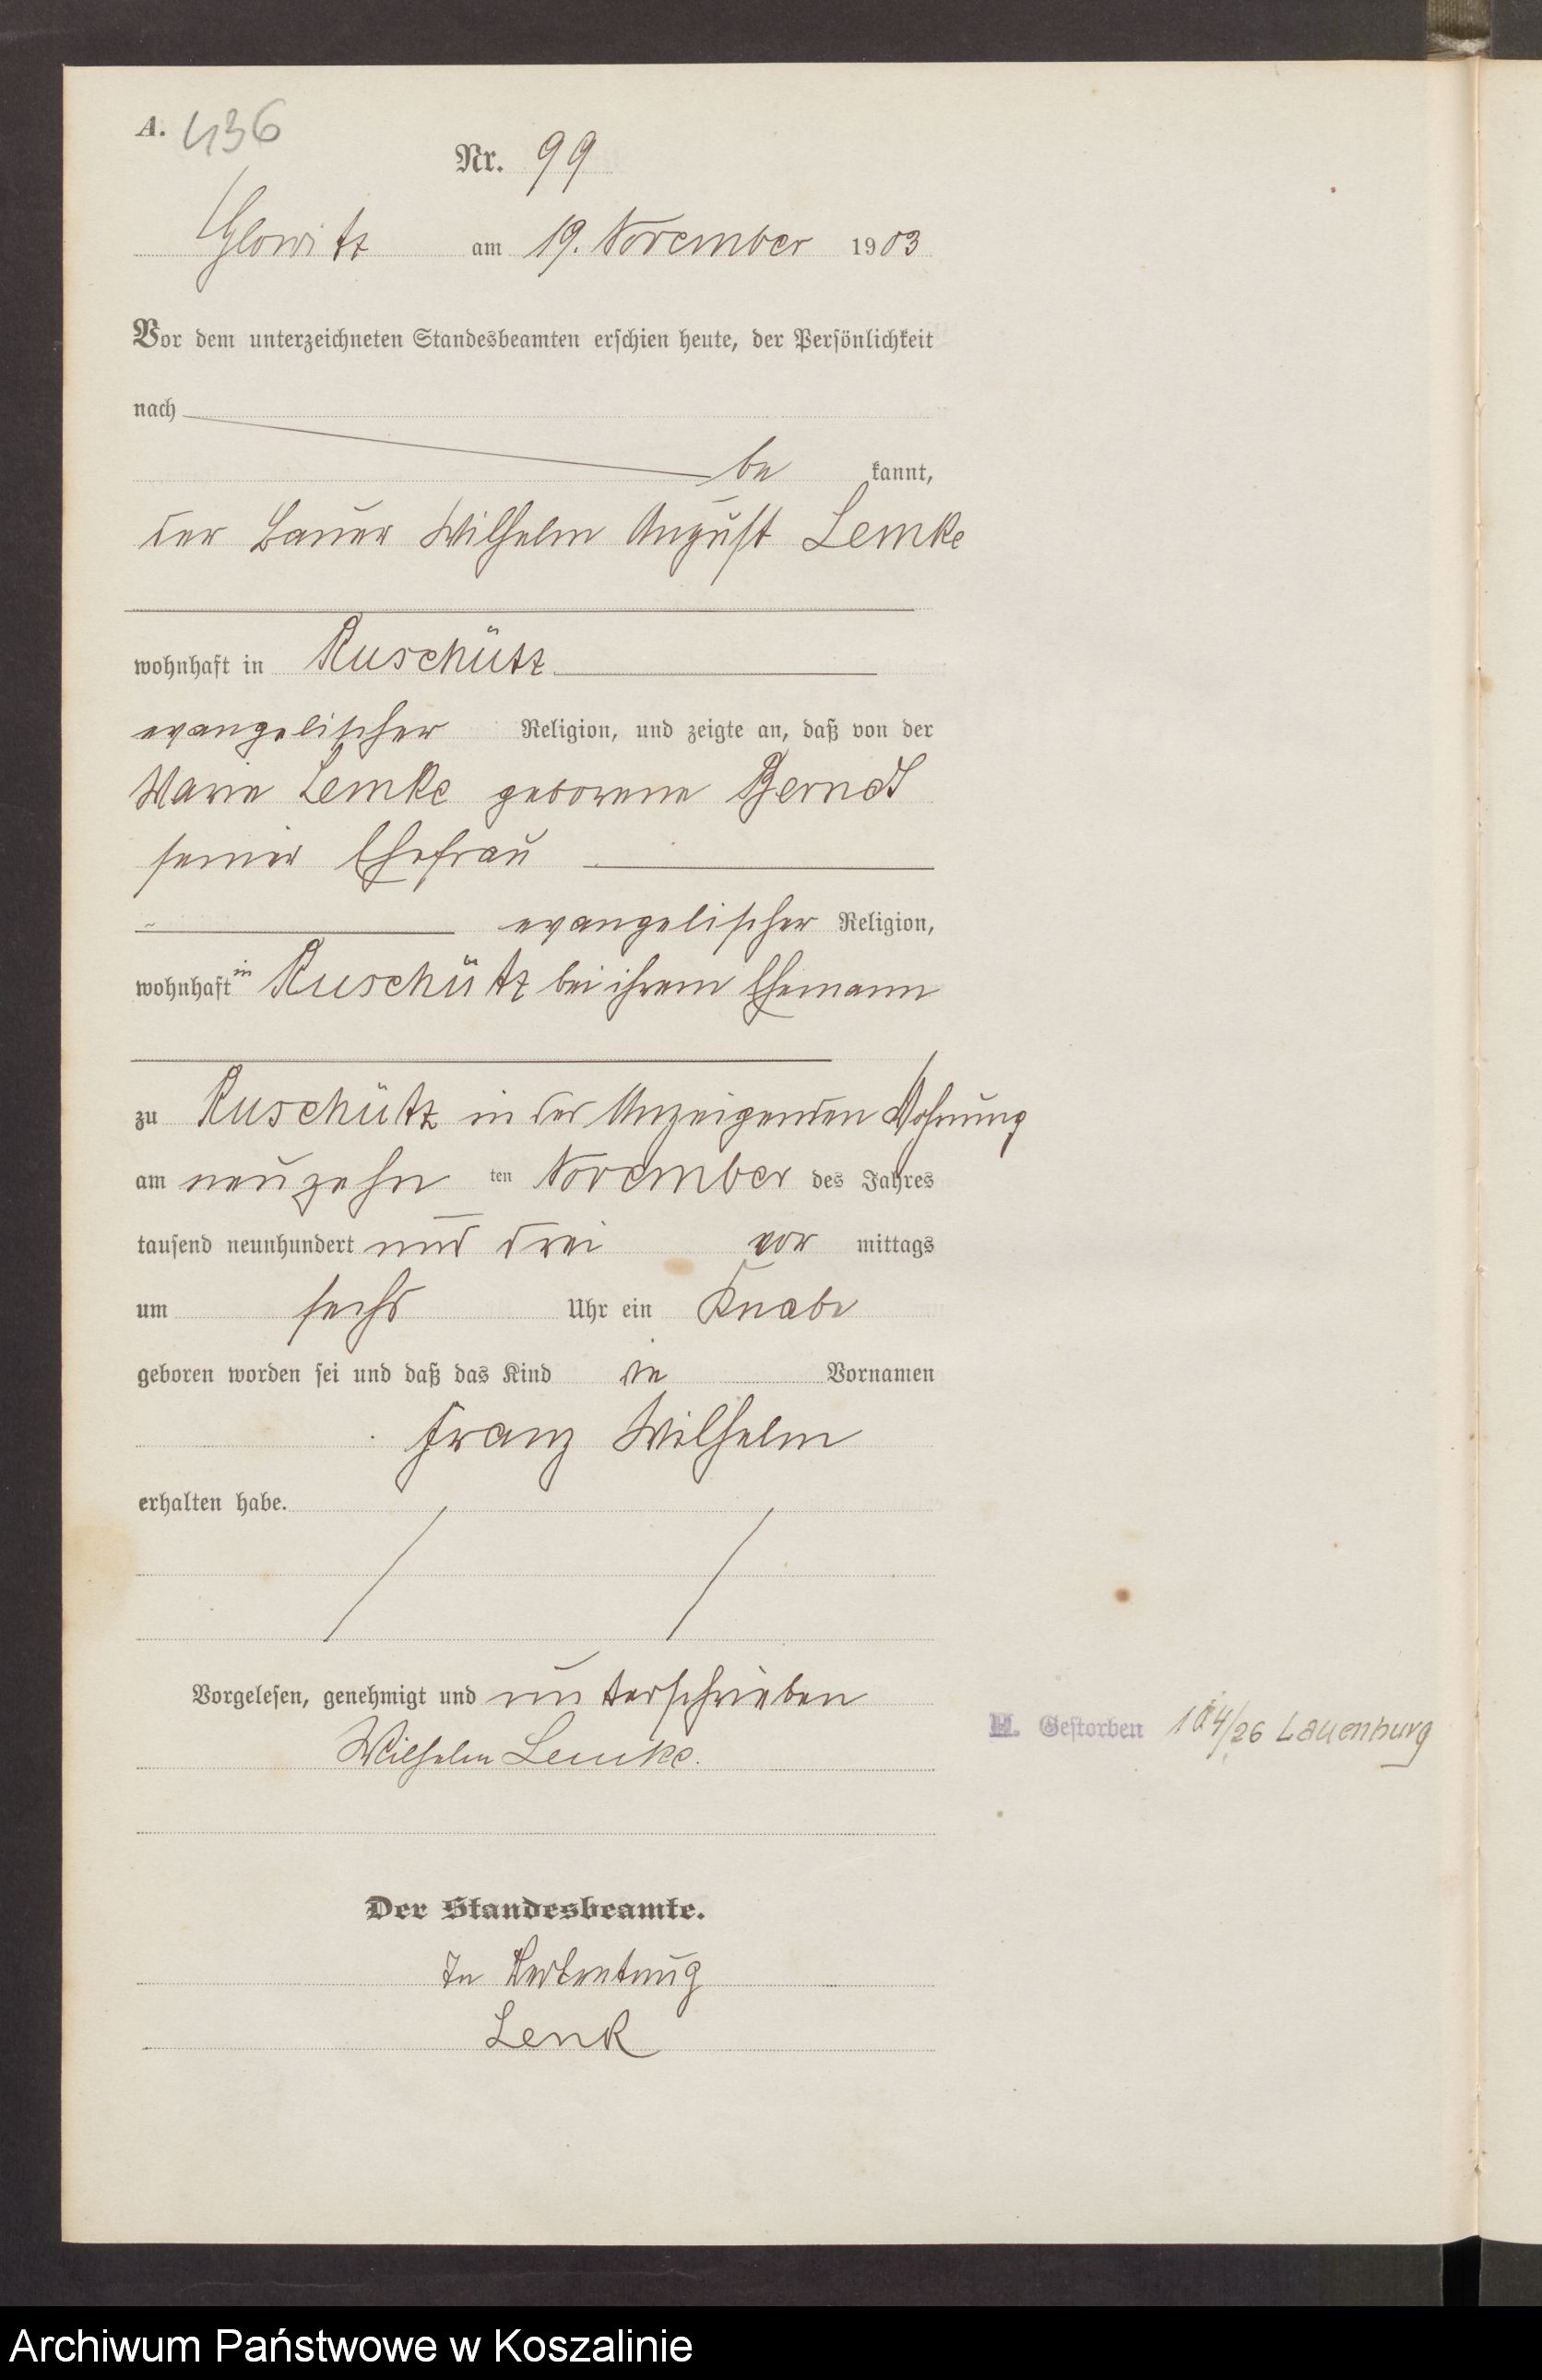 A. 436
Nr. 99
Glowitz am 19. November 1903
Vor dem unterzeichneten Standesbeamten erschien heute, der Persönlichkeit
nach
be kannt,
der Bauer Wilhelm August Lemke
wohnhaft in Ruschütz
evangelischer Religion, und zeigte an, daß von der
Marie Lemke geborene Berndt
seiner Ehefrau
evangelischer Religion,
wohnhaft in Ruschütz bei ihrem Ehemann
zu Ruschütz in der Anzeigenden Wohnung
am neunzehn ten November des Jahres
tausend neunhundert und drei vor mittags
um sechs Uhr ein Knabe
geboren worden sei und daß das Kind die Vornamen
Franz Wilhelm
erhalten habe.
Vorgelesen, genehmigt und unterschrieben
Wilhelm Lemke.
H. Gestorben 4/26 Lauenburg
Der Standesbeamte.
In Vertretung
Lenk
Archiwum Państwowe w Koszalinie